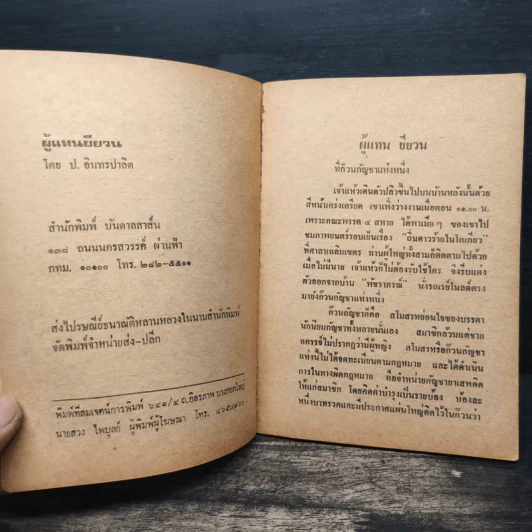 ผู้แทนยียวน
โดย ป. อินทรปาลิต
สำนักพิมพ์ บันดาลสาส์น
๑๓๘ ถนนนครสวรรค์ ผ่านฟ้า
กทม. ๑๐๑๐๐ โทร. ๒๘๒-๕๕๑๑
ส่งไปรษณีย์ธนาณัติหลานหลวงในนามสำนักพิมพ์
จัดพิมพ์จำหน่ายส่ง-ปลีก
พิมพ์ที่สมเจตน์การพิมพ์ ๖๔๑/๔ ถ.อิสรภาพ บางกอกใหญ่
นายสวง ไพบูลย์ ผู้พิมพ์ผู้โฆษณา โทร.
ผู้แทน ยียวน
ที่ก๊วนกัญชาแห่งหนึ่ง
เจ้าแห้วเดินตัวปลิวขึ้นไปบนบ้านหลังนั้นด้วย
สีหน้าเคร่งเครียด เขาเพิ่งว่างงานเมื่อตอน ๑๑.๐๐ น.
เพราะคณะพรรค ๔ สหาย ได้พาเมีย ๆ ของเขาไป
ชมภาพยนตร์รอบเย็นเรื่อง "ถิ่นดาวร้ายในโตเกียว"
ที่ศาลาเฉลิมเขตร ท่านผู้ใหญ่ทั้งสามก็ติดตามไปด้วย
เมื่อไม่มีนาย เจ้าแห้วก็ไม่ต้องรับใช้ใคร จึงรีบแต่ง
ตัวออกจากบ้าน "พัชราภรณ์" นั่งรถเมล์ไนลต์ตรง
มายังก๊วนกัญชาแห่งหนึ่ง
ก๊วนกัญชาก็คือ สโมสรหย่อนใจของบรรดา
นักนิยมกัญชาทั้งหลายนั่นเอง สมาชิกล้วนแต่ชาย
ฉกรรจ์ไม่ปรากฏว่ามีผู้หญิง สโมสรหรือก๊วนกัญชา
แห่งนี้ไม่ได้จดทะเบียนตามกฎหมาย และได้ดำเนิน
การในทางผิดกฎหมาย คือจำหน่ายกัญชายาเสพติด
ให้แก่สมาชิก โดยคิดค่าบำรุงเป็นรายบ้อง บ้องละ
หนึ่งบาทรวดและมีประกาศแผ่นใหญ่ติดไว้ในก๊วนว่า